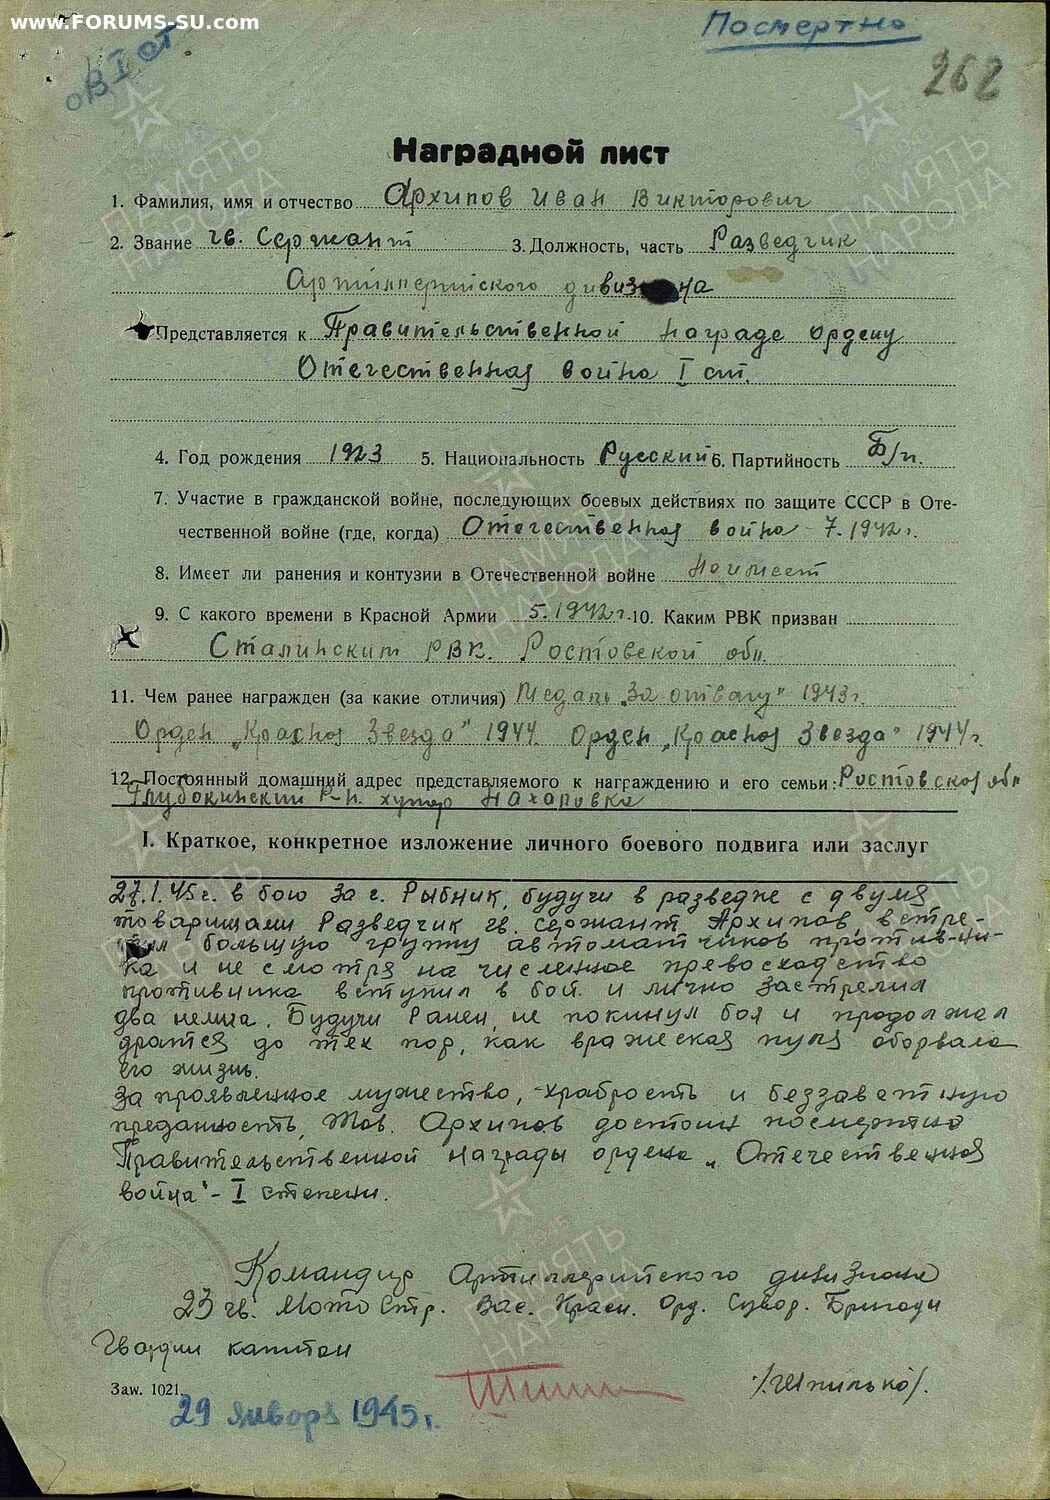 www.FORUMS-SU.com
Посмертно
ОВ I ст
262
Наградной лист
1. Фамилия, имя и отчество Архипов Иван Викторович
2. Звание гв. Сержант 3. Должность, часть Разведчик
Артиллерийского дивизиона
Представляется к Правительственной награде ордену
Отечественная война I ст.
4. Год рождения 1923 5. Национальность Русский 6. Партийность Б/п.
7. Участие в гражданской войне, последующих боевых действиях по защите СССР в Оте-
чественной войне (где, когда) Отечественная война 7.1942г.
8. Имеет ли ранения и контузии в Отечественной войне Не имеет
9. С какого времени в Красной Армии 5.1942г. 10. Каким РВК призван
Сталинским РВК. Ростовской обл.
11. Чем ранее награжден (за какие отличия) Медаль „За отвагу" 1943г.
Орден „Красная Звезда" 1944. Орден „Красная Звезда" 1944г.
12. Постоянный домашний адрес представляемого к награждению и его семьи: Ростовская обл
Глубокинский Р-н. хутор
I. Краткое, конкретное изложение личного боевого подвига или заслуг
27.1.45г. в бою за г. Рыбник, будучи в разведке с двумя
товарищами Разведчик гв. сержант Архипов, встре-
тил большую группу автоматчиков противни-
ка и не смотря на численное превосходство
противника вступил в бой и лично застрелил
два немца. Будучи Ранен, не покинул боя и продолжал
дратся до тех пор, как вражеская пуля оборвала
его жизнь.
За проявленное мужество, храбрость и беззаветную
преданность, Тов. Архипов достоин посмертно
Правительственной награды ордена „Отечественная
война" - I степени.
Командир Артиллерийского дивизиона
23 гв. Мото Стр. Вас. Красн. Орд. Сувор. Бригады
Гвардии капитан
/Шпилько/.
Zaw. 1021.
29 января 1945г.
ПАМЯТЬ НАРОДА